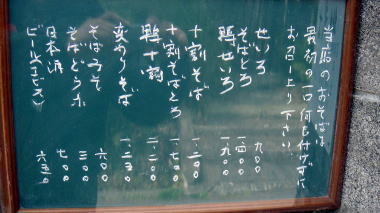 当店のおそばは
最初の一口何も付けずに
お召し上り下さい
せいろ 九〇〇
そばとろ 一、四〇〇
鴨せいろ 一、九〇〇
十割そば 一、二〇〇
十割そばとろ 一、七〇〇
鴨十割 二、二〇〇
変わりそば 一、二、三〇
そばみそ 六〇〇
そばどうふ 三〇〇
日本酒 七〇〇
ビール 六五〇